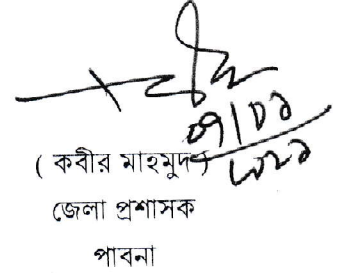 ( কবীর মাহমুদ )
জেলা প্রশাসক
পাবনা